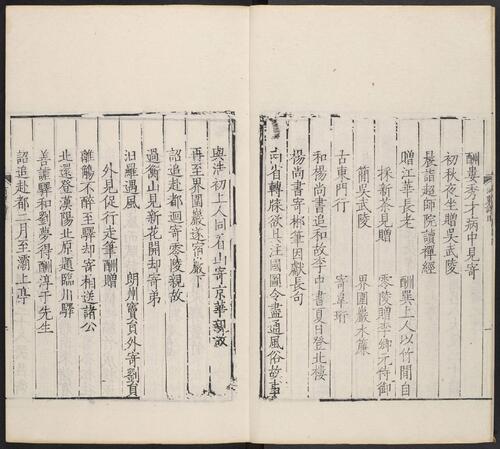 酬婁秀才病中見寄
初秋夜坐贈吳武陵
晨詣超師院讀禪經
贈江華長老　酬巽上人以竹間自
採新茶見贈　零陵贈李卿元侍御
簡吳武陵　界圍巖水簾
古東門行　寄韋珩
和楊尚書追和故李中書夏日登北樓
楊尚書寄郴筆因獻長句
南省轉牒欲具注國圖令盡通風俗故事
與浩初上人同看山寄京華親故
再至界圍巖遂宿巖下
詔追赴都迴寄零陵親故
過衡山見新花開却寄弟
汨羅遇風　朗州竇員外寄劉員
外見促行走筆酬贈
離觴不醉至驛却寄相送諸公
北還登漢陽北原題臨川驛
善謔驛和劉夢得酬淳于先生
詔追赴都二月至灞上亭